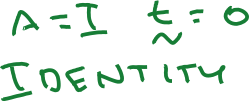 A = I t = 0
IDENTITY